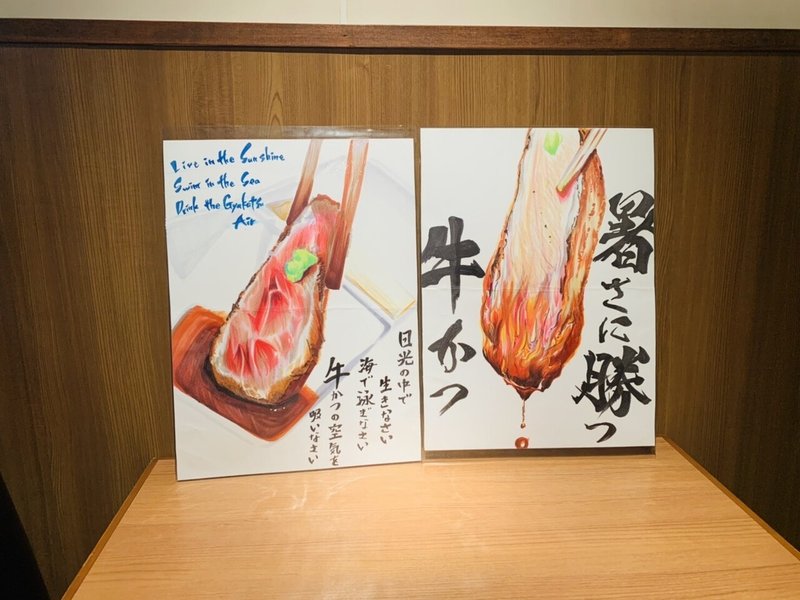 Live in the Sunshine
Swim in the Sea
Drink the Gyukatsu
Air
日光の中で
生きなさい
海で泳ぎなさい
牛かつの空気を
吸いなさい
暑さに勝つ
牛かつ